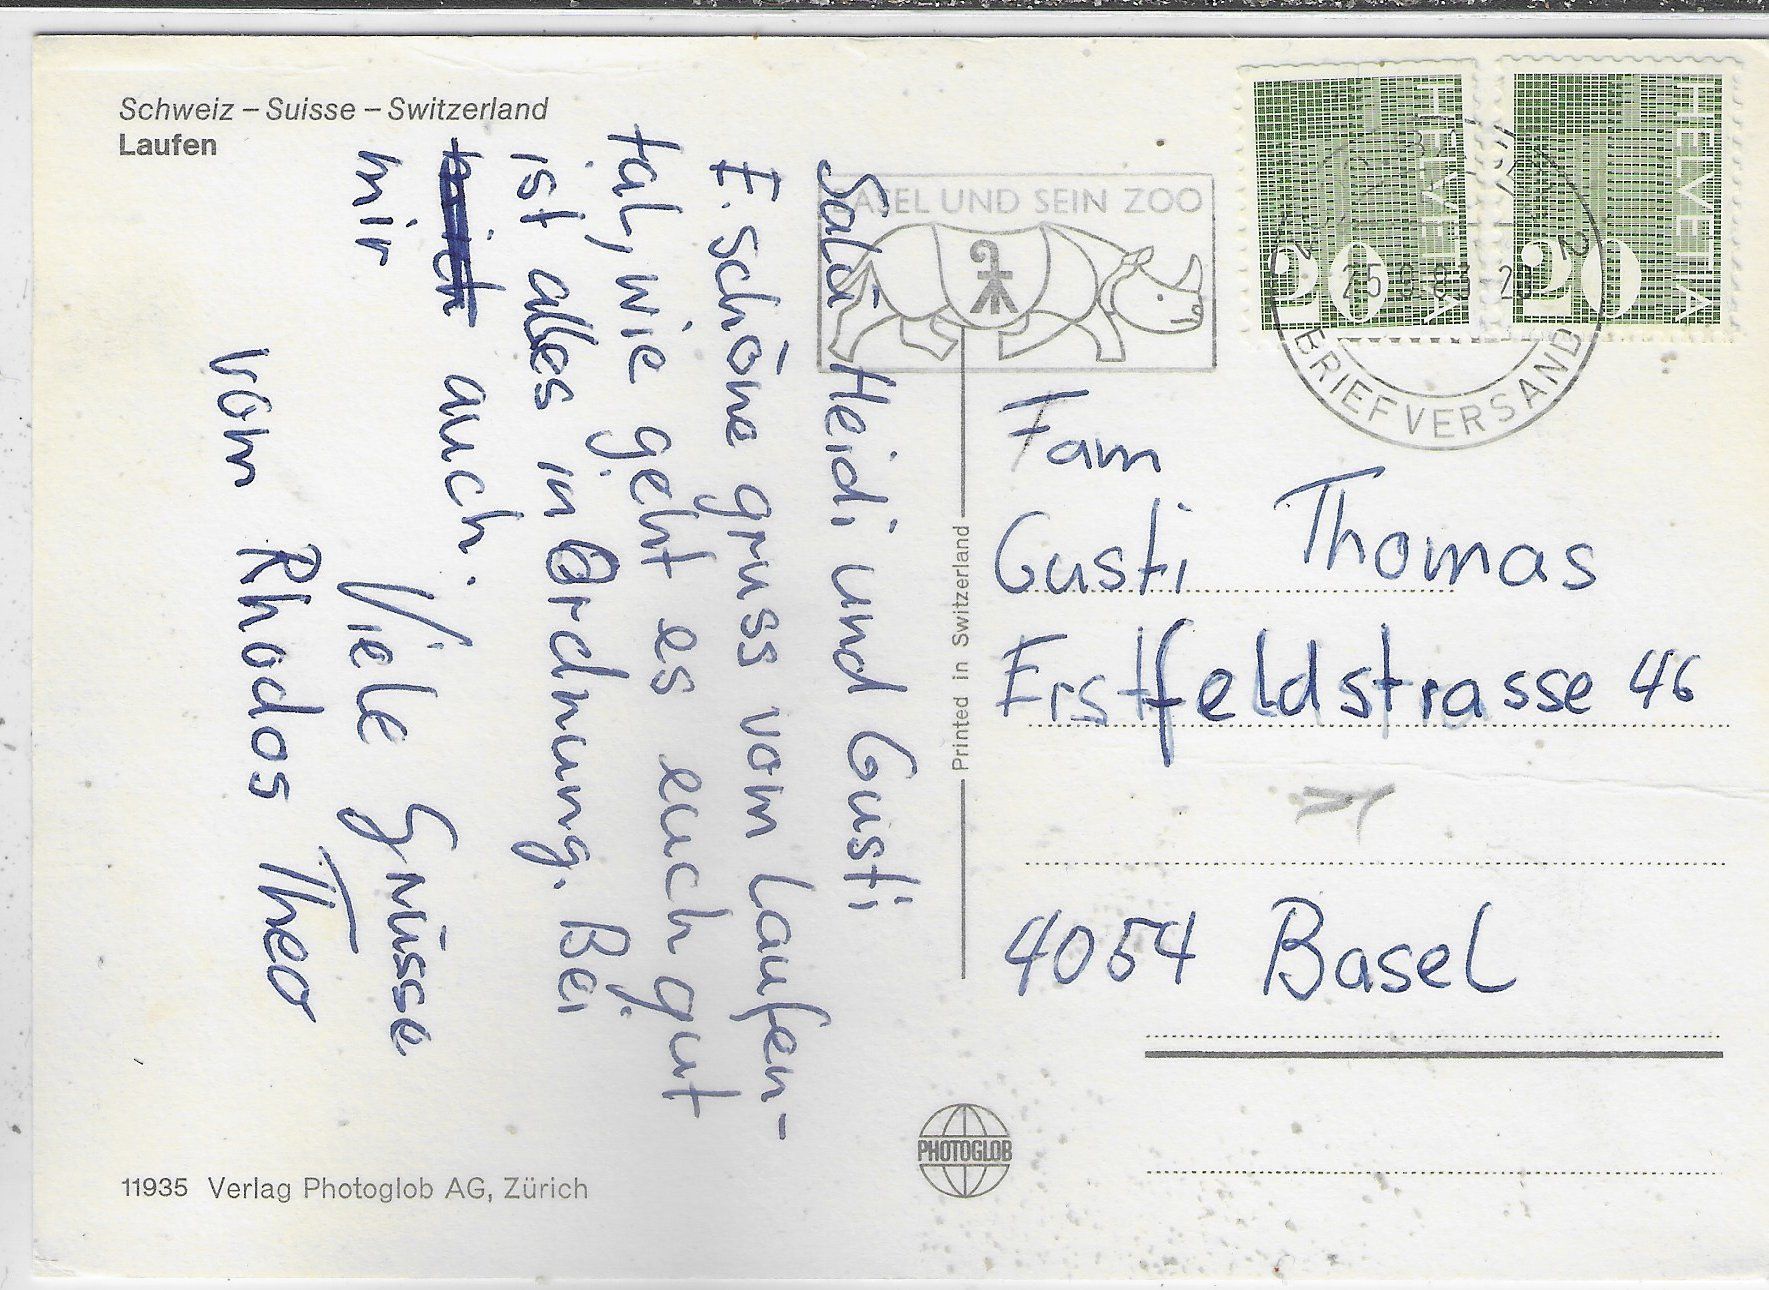 Schweiz – Suisse – Switzerland
Laufen
Salü Heidi und Gusti
E. schöne gruss vom Laufen-
tal, wie geht es euch gut
ist alles in Ordnung. Bei
auch.
mir
Viele Grüsse
vom Rhodos Theo
11935 Verlag Photoglob AG, Zürich
BASEL UND SEIN ZOO
HELVETIA
20
HELVETIA
20
BRIEFVERSAND
Printed in Switzerland
Fam
Gusti Thomas
Erstfeldstrasse 46
4054 Basel
PHOTOGLOB